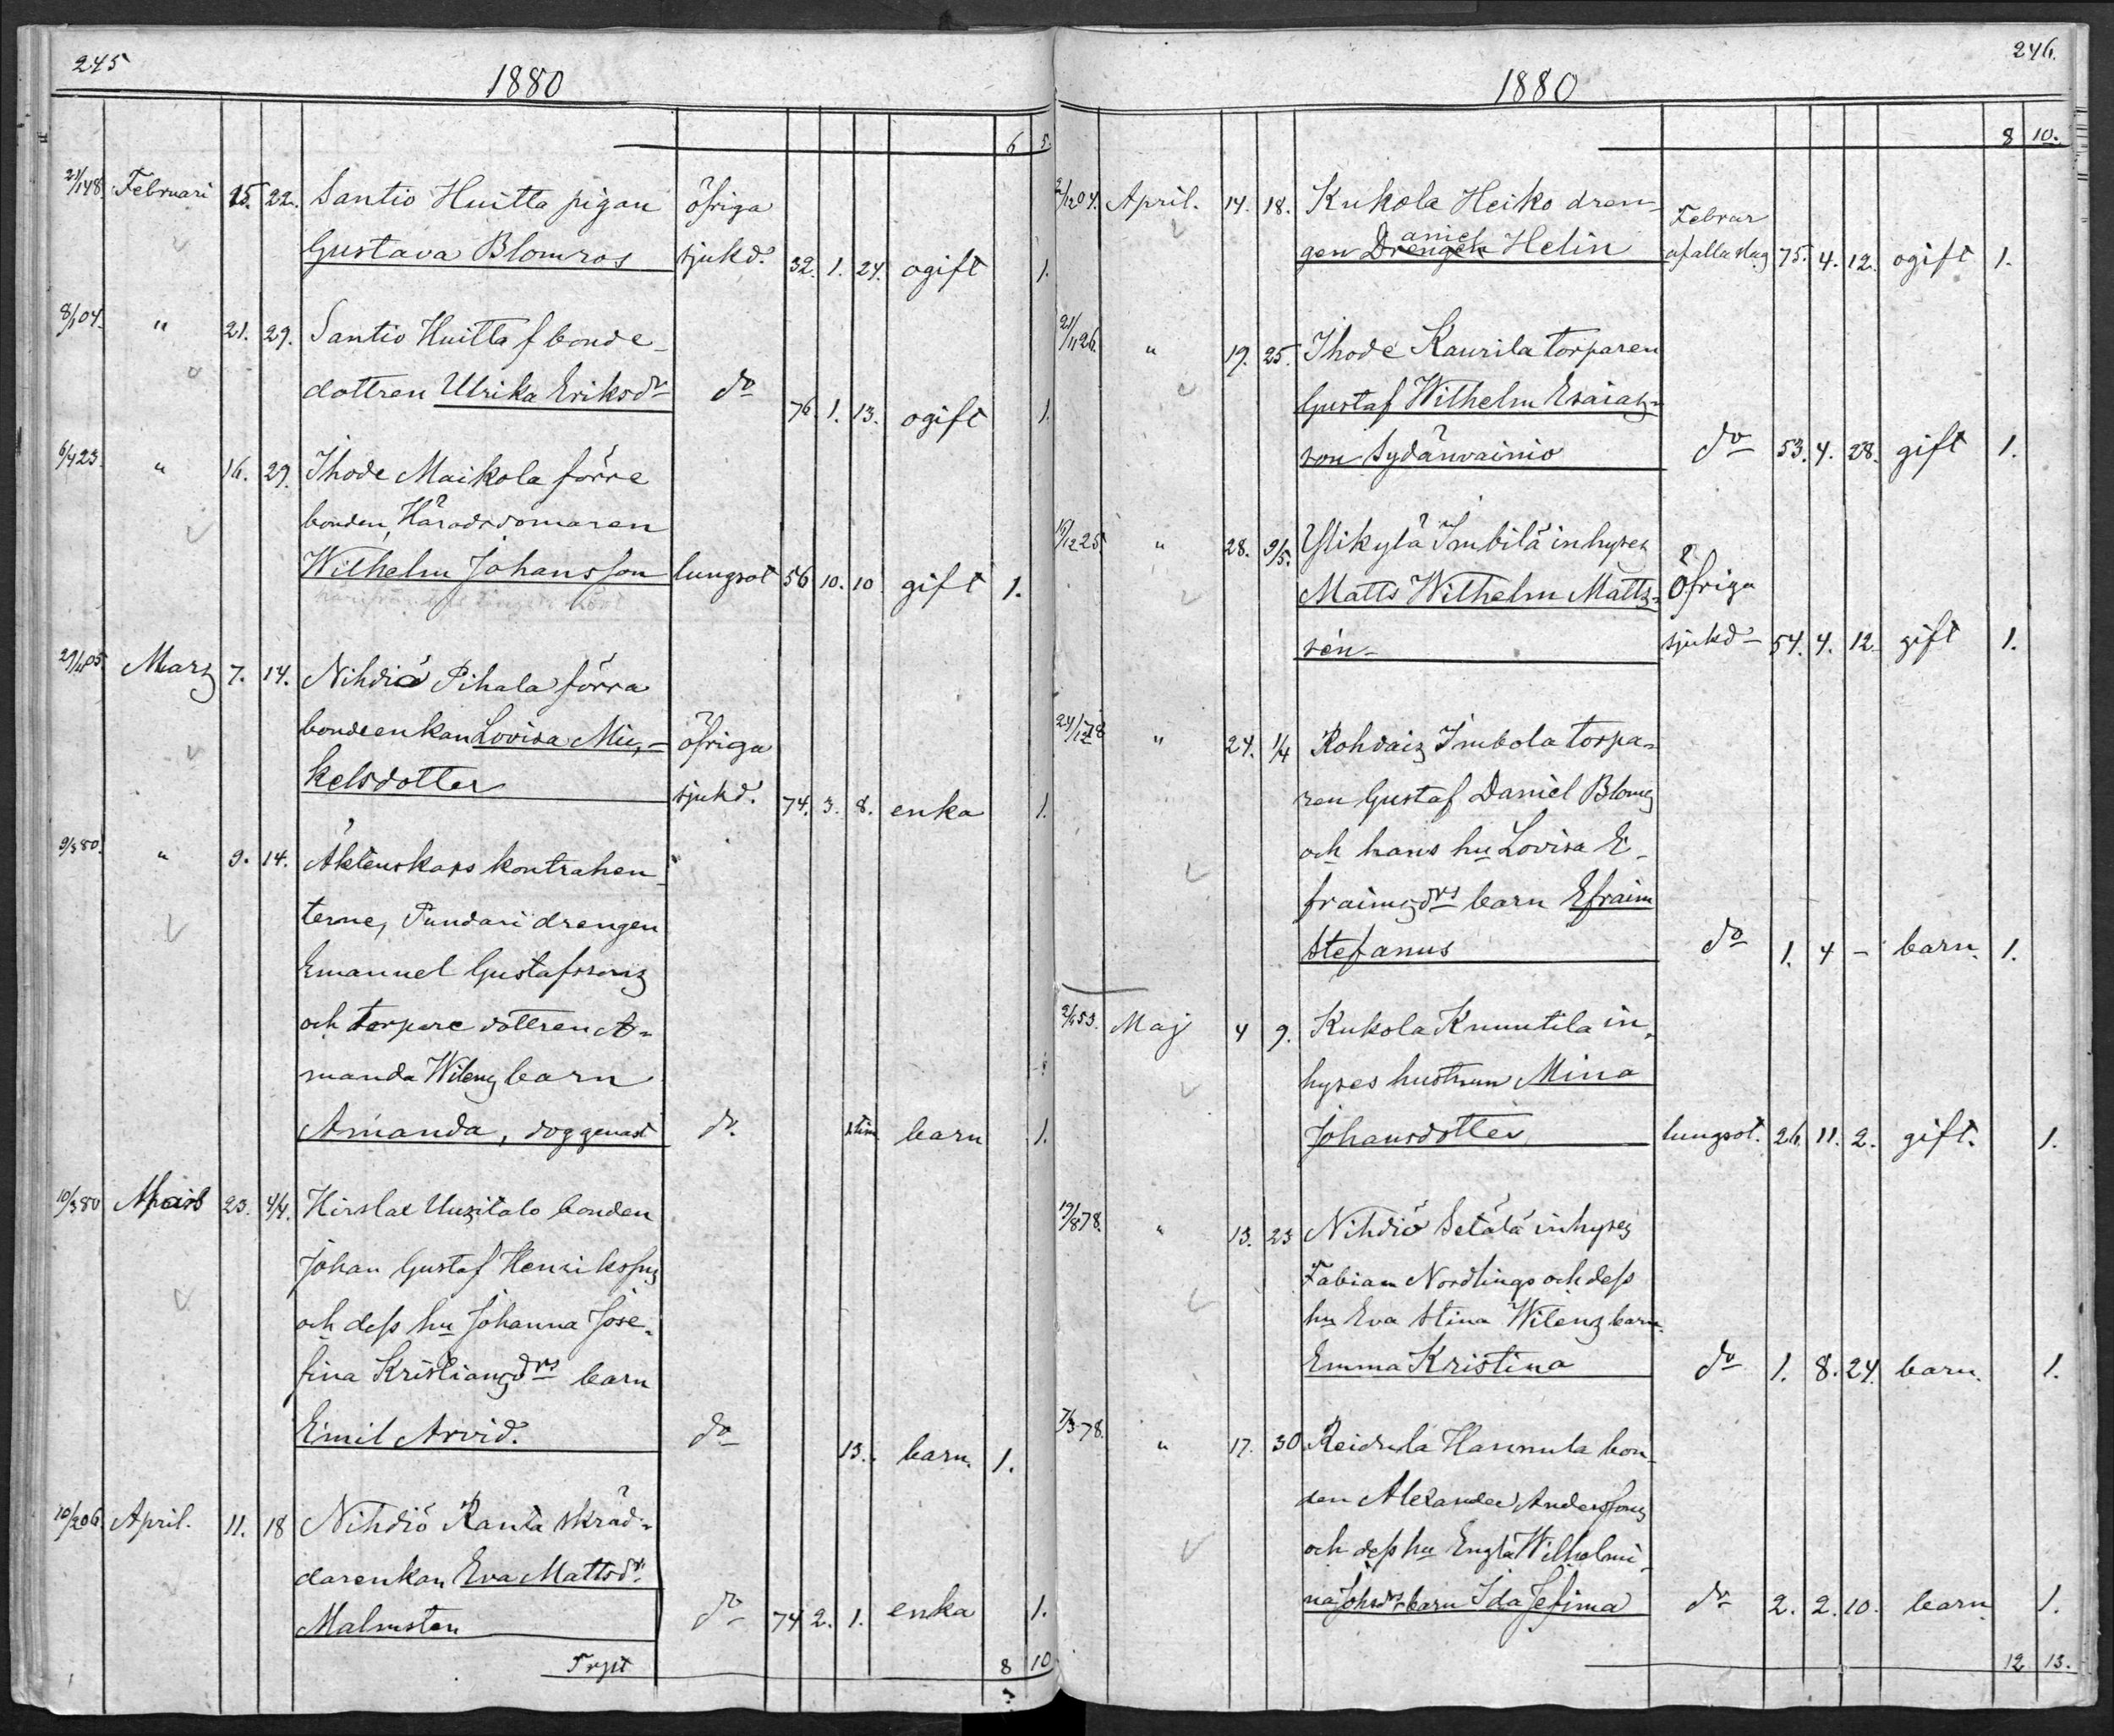 245
1880
6 5.
21/1 48. Februari 15. 22. Santio Huitta pigan öfriga
Gustava Blomros sjukd. 32. 1. 24. ogift 1.
8/1 04. " 21. 29. Santio Huitta f bonde-
dottren Ulrika Eriksdr do 76. 1. 13. ogift 1.
6/4 23. " 16. 29. Ihode Maikola förre
bonden, Häradsdomaren
Wilhelm Johansson lungsot 56 10. 10 gift 1.
Marz 7. 14. Nihdiö Pihala förra
bondeenkan Lovisa Mic- öfriga
kelsdotter sjukd. 74. 3. 8. enka 1.
9/3 80. " 9. 14. Äktenskaps kontrahen-
terne, Pundari drengen
Emanuel Gustafssons
och torpare dottren A-
manda Wilenz barn
Amanda, dog genast do. 1 tim barn 1.
10/3 80 23. 4/4. Hirslax Uusitalo bonden
Johan Gustaf Henrikssons
och dess hu Johanna Jose-
fina Kristiansdrs barn
Emil Arvid. do 13. barn. 1.
10/2 06. April. 11. 18 Nihdiö Ranta skräd-
darenkan Eva Mattsdr
Malmsten do 74 2. 1. enka 1.
8 10
246.
1880
8 10.
2/12 04. April. 14. 18. Kukola Heiko dren- Febrar
gen Drengen aniel Helin af alla slag 75. 4. 12. ogift 1.
21/11 26. " 19. 25. Ihode Kaurila torparen
Gustaf Wilhelm Esaias-
son Sydänvainio do 53. 4. 28. gift 1.
16/12 25 " 28. 9/5. Ylikylä Imbilä inhyses
Matts Wilhelm Matts- Öfriga
son- sjukd- 54. 4. 12. gift 1.
24/12 78 " 24. 1/4 Rohdais Imbola torpa-
ren Gustaf Daniel Bloms
och hans hu Lovisa E-
fraimsdrs barn Efraim
Stefanus do 1. 4 - barn. 1.
2/6 53. Maj 4 9. Kukola Knuutila in-
hyses hustrun Mina
Johansdotter lungsot. 26. 11. 2. gift. 1.
19/8 78. " 13. 23 Nihdiö Setälä inhyses
Fabian Nordlings och dess
hu Eva Stina Wilenz barn
Emma Kristina do 1. 8. 24. barn. 1.
7/3 78. " 17. 30 Reidula Hannula bon-
den Alexander Anderssons
och dess hu Engla Wilhelmi-
na Johsdrs barn Ida Sefima do 2. 2. 10. barn 1.
12 13.